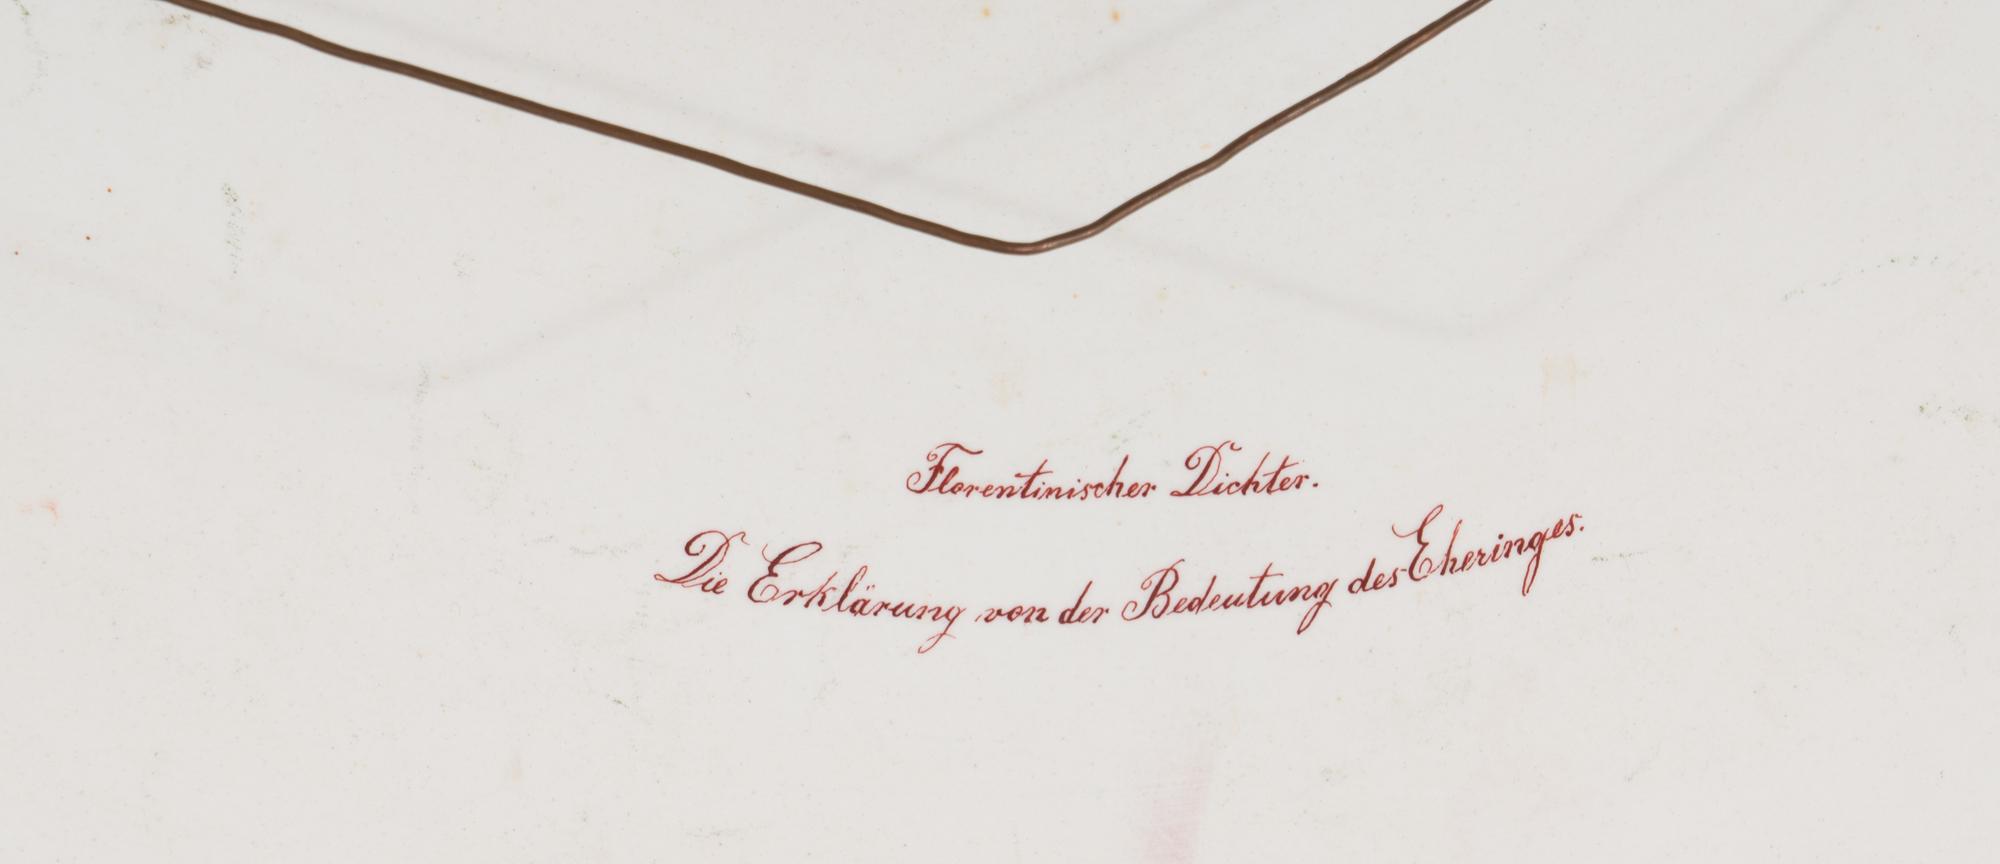 Florentinischer Dichter.
Die Erklärung von der Bedeutung des Eheringes.